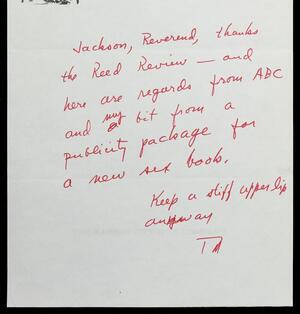 Jackson, Reverend, thanks
the Reed Review — and
here are regards from ABC
and my bit from a
publicity package for
a new sex book.
Keep a stiff upper lip
anyway